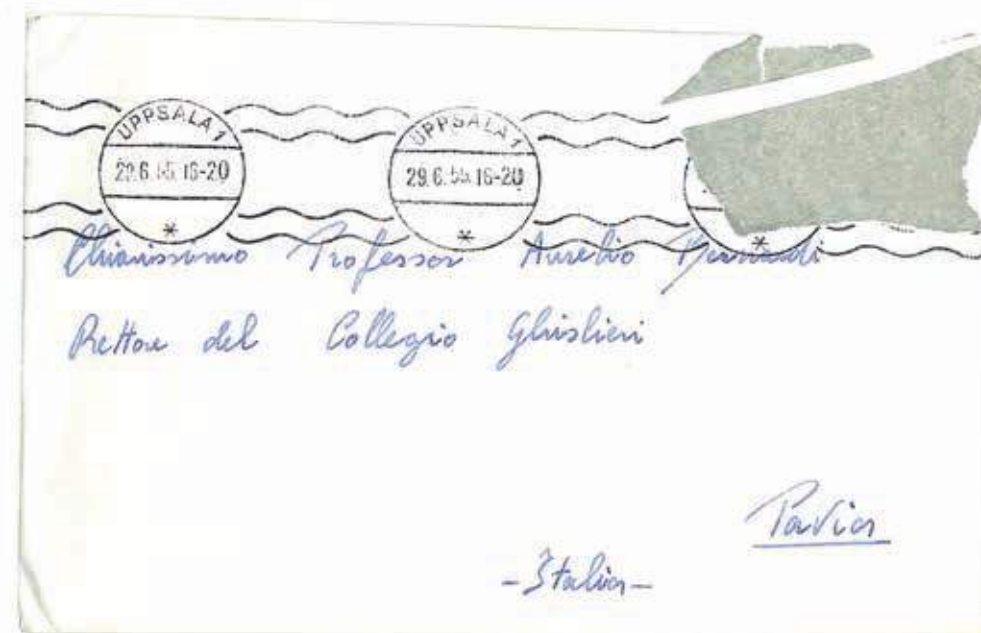 UPPSALA 1 UPPSALA 1
29.6.55.16-20 29.6.55.16-20
Chiarissimo Professor Aurelio Bernardi
Rettore del Collegio Ghislieri
Pavia
-Italia-